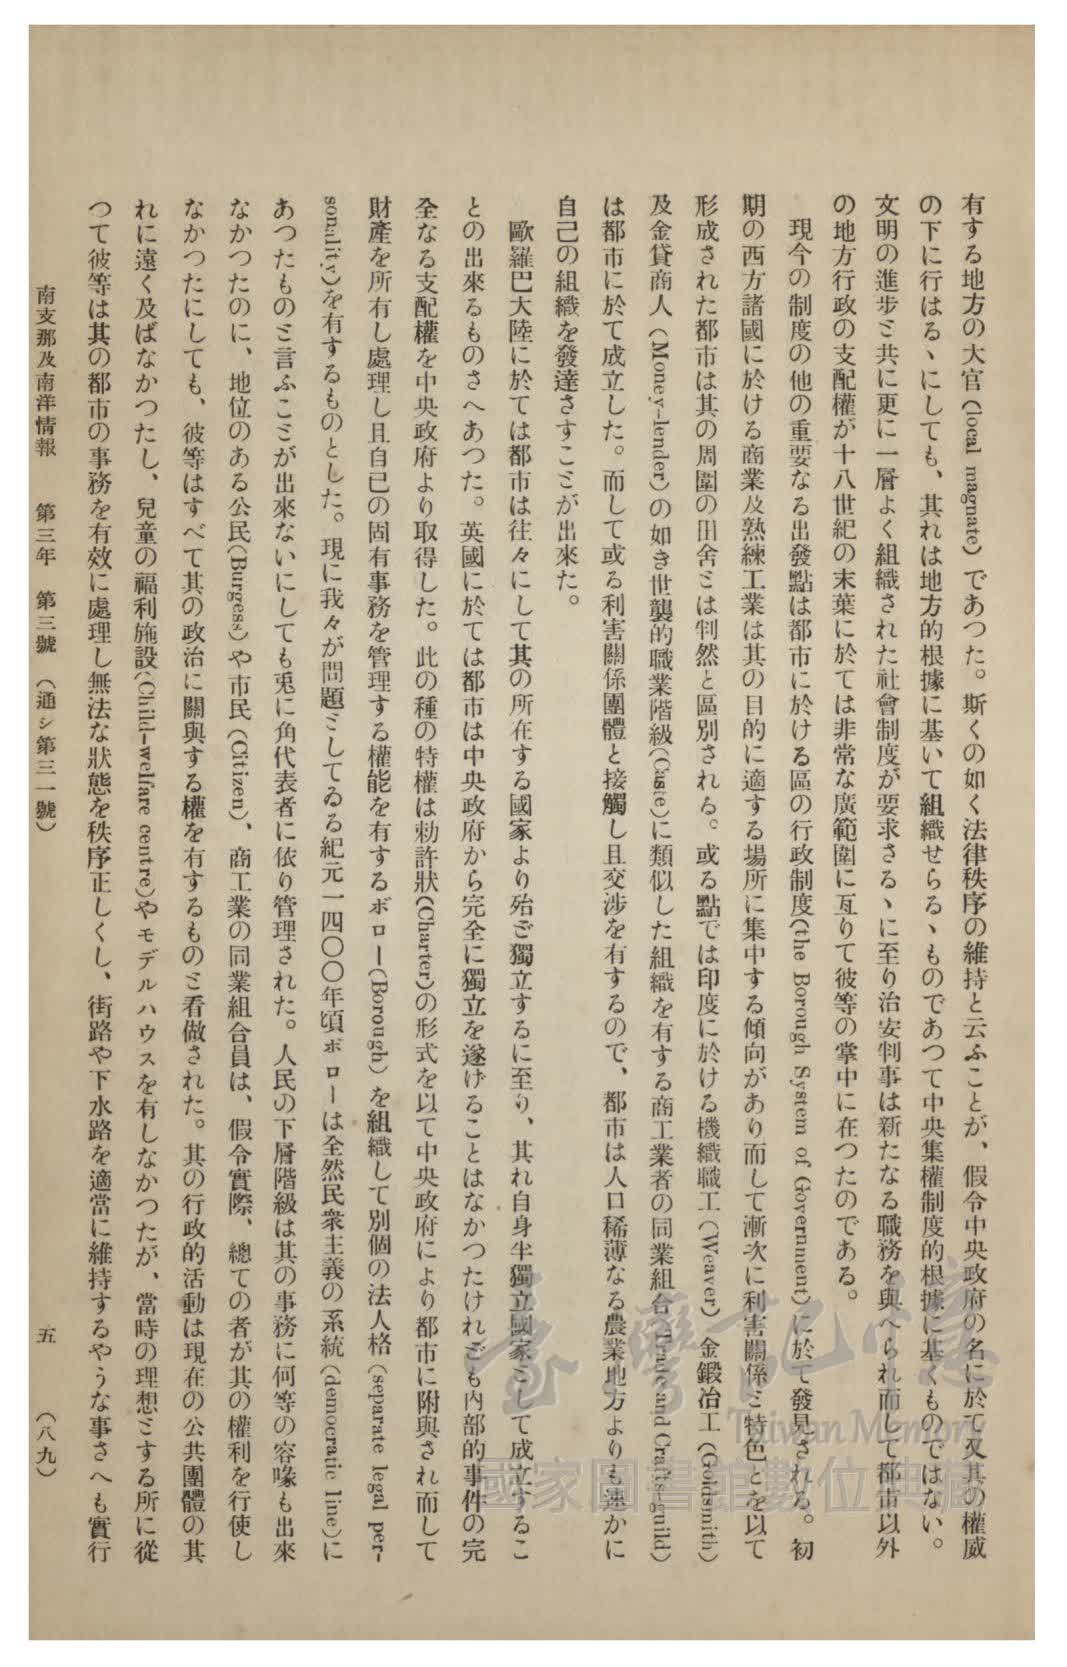 有する地方の大官(local magnate)であつた。斯くの如く法律秩序の維持と云ふことが、假令中央政府の名に於て又其の權威
の下に行はるゝにしても、其れは地方的根據に基いて組織せらるゝものであつて中央集權制度的根據に基くものではない。
文明の進步ミ共に更に一層よく組織された社會制度が要求さるゝに至り治安判事は新たなる職務を與へられ而して都市以外
の地方行政の支配權が十八世紀の末葉に於ては非常な廣範圍に亙りて彼等の掌中に在つたのである。
現今の制度の他の重要なる出發點は都市に於ける區の行政制度(the Borough System of Government)に於て發見される。初
期の西方諸國に於ける商業及熟練工業は其の目的に適する場所に集中する傾向があり而して漸次に利害關係ミ特色とを以て
形成された都市は其の周圍の田舍ミは判然と區別される。或る點では印度に於ける機織職工(Weaver)金鍛冶工(Goldsmith)
及金貸商人(Money-lender)の如き世襲的職業階級(Caste)に類似した組織を有する商工業者の同業組合(Trade and Crafts-guild)
は都市に於て成立した。而して或る利害關係團體と接觸し且交涉を有するので、都市は人口稀薄なる農業地方よりも速かに
自己の組織を發達さすこミが出來た。
歐羅巴大陸に於ては都市は往々にして其の所在する國家より殆ご獨立するに至り、其れ自身半獨立國家ミして成立するこ
との出來るものさへあつた。英國に於ては都市は中央政府から完全に獨立を遂げることはなかつたけれごも內部的事件の完
全なる支配權を中央政府より取得した。此の種の特權は勅許狀(Charter)の形式を以て中央政府により都市に附與され而して
財產を所有し處理し且自己の固有事務を管理する權能を有するボロー(Borough)を組織して別個の法人格(separate legal per-
sonality)を有するものとした。現に我々が問題ミしてゐる紀元一四〇〇年頃ボローは全然民衆主義の系統(democratic line)に
あつたものミ言ふこミが出來ないにしても兎に角代表者に依り管理された。人民の下層階級は其の事務に何等の容喙も出來
なかつたのに、地位のある公民(Burgess)や市民(Citizen)、商工業の同業組合員は、假令實際、總ての者が其の權利を行使し
なかつたにしても、彼等はすべて其の政治に關與する權を有するものミ看做された。其の行政的活動は現在の公共團體の其
れに遠く及ばなかつたし、兒童の福利施設(Child-welfare centre)やモデルハウスを有しなかつたが、當時の理想ミする所に從
つて彼等は其の都市の事務を有效に處理し無法な狀態を秩序正しくし、街路や下水路を適當に維持するやうな事さへも實行
南支那及南洋情報 第三年 第三號 (通シ第三一號) 五 (八九)
臺灣記憶
Taiwan Memory
國家圖書館數位典藏